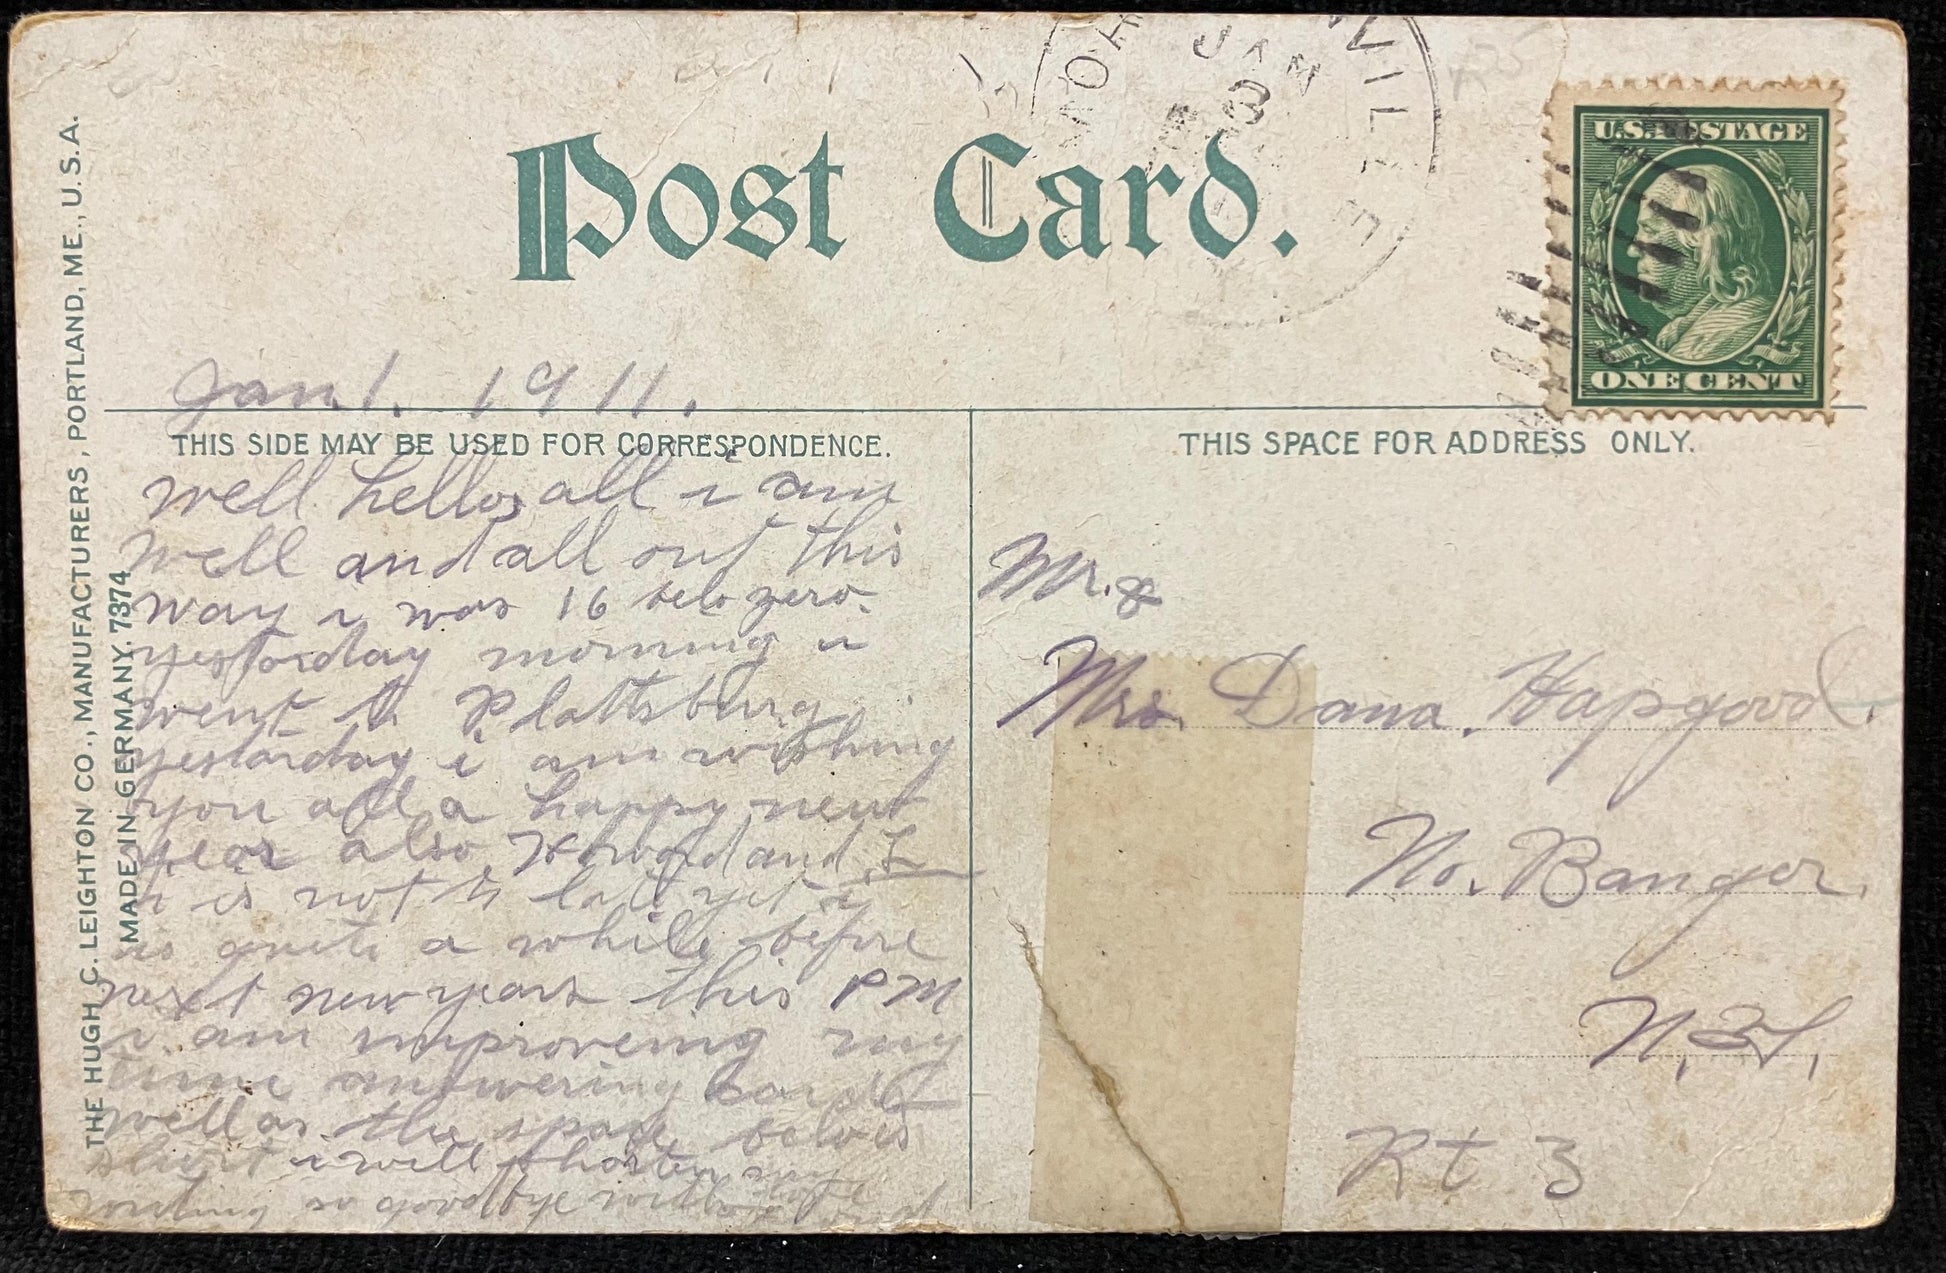 Post Card.
JAN
3
VILLE
U.S. POSTAGE
ONE CENT
THE HUGH C. LEIGHTON CO., MANUFACTURERS, PORTLAND, ME., U.S.A.
MADE IN GERMANY. 7374
Jan. 1. 1911.
THIS SIDE MAY BE USED FOR CORRESPONDENCE.
well hellos all i am
well and all out this
way i was 16 belo zero.
yestorday morning i
went to Plattsburg
yestarday i am wishing
you all a happy new
year also Howard and
it is not to lait yet it
is quite a while before
next new years this PM
i am improveing my
time answering cards
well as the space belo is
short i will shorten my
writing so good bye
THIS SPACE FOR ADDRESS ONLY.
Mr. &
Mrs. Dana. Hapgood.
No. Banger.
N.Y.
Rt 3